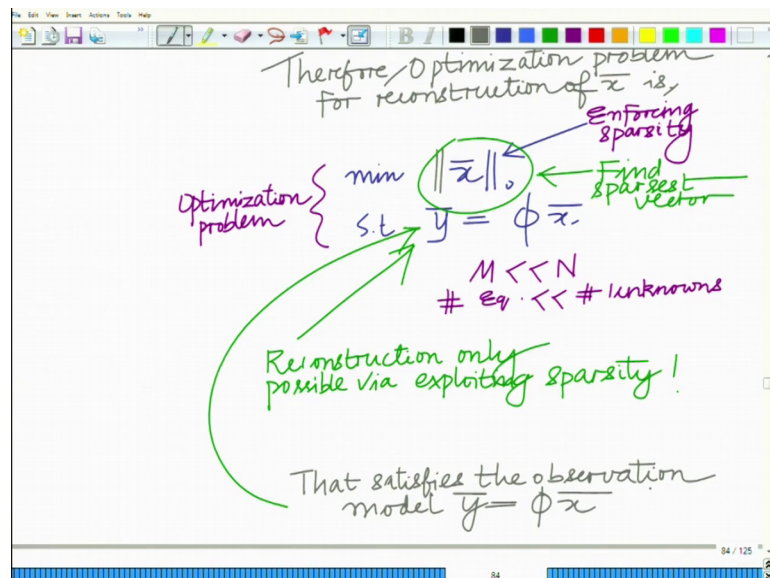 File Edit View Insert Actions Tools Help
B I
Therefore, Optimization problem
for reconstruction of x̅ is,
Enforcing
sparsity
min ‖x̅‖₀
Find
sparsest
vector
Optimization
problem
s.t y̅ = ϕ x̅.
M << N
# Eq. << # unknowns
Reconstruction only
possible via exploiting sparsity !
That satisfies the observation
model y̅ = ϕ x̅
84 / 125
84